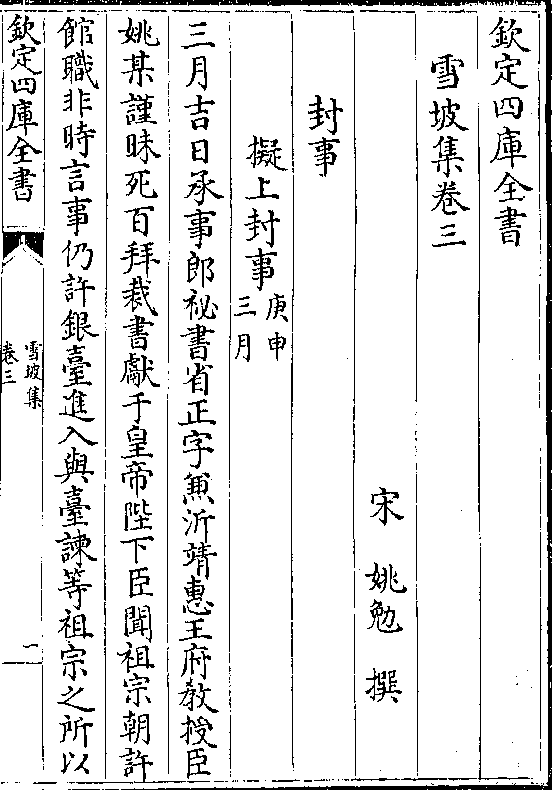 欽定四庫全書
雪坡集卷三
宋 姚勉 撰
封事
擬上封事庚申三月
三月吉日承事郎祕書省正字兼沂靖惠王府教授臣
姚某謹昧死百拜裁書獻于皇帝陛下臣聞祖宗朝許
館職非時言事仍許銀臺進入與臺諫等祖宗之所以
欽定四庫全書
雪坡集
卷三
一